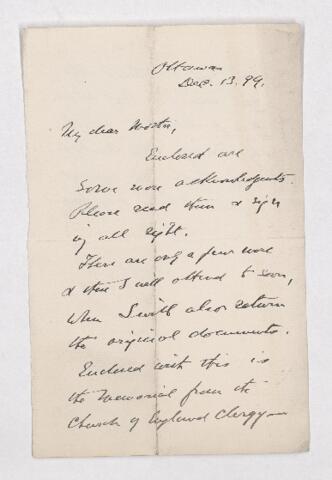 Ottawa
Dec. 13. 99.
My dear
Enclosed are
some more acknowledgments.
Please read them & sign
if all right.
There are only a few more
& them I will attend to soon,
when I will also return
the original documents.
Enclosed with this is
the memorial from the
Church of England Clergy—